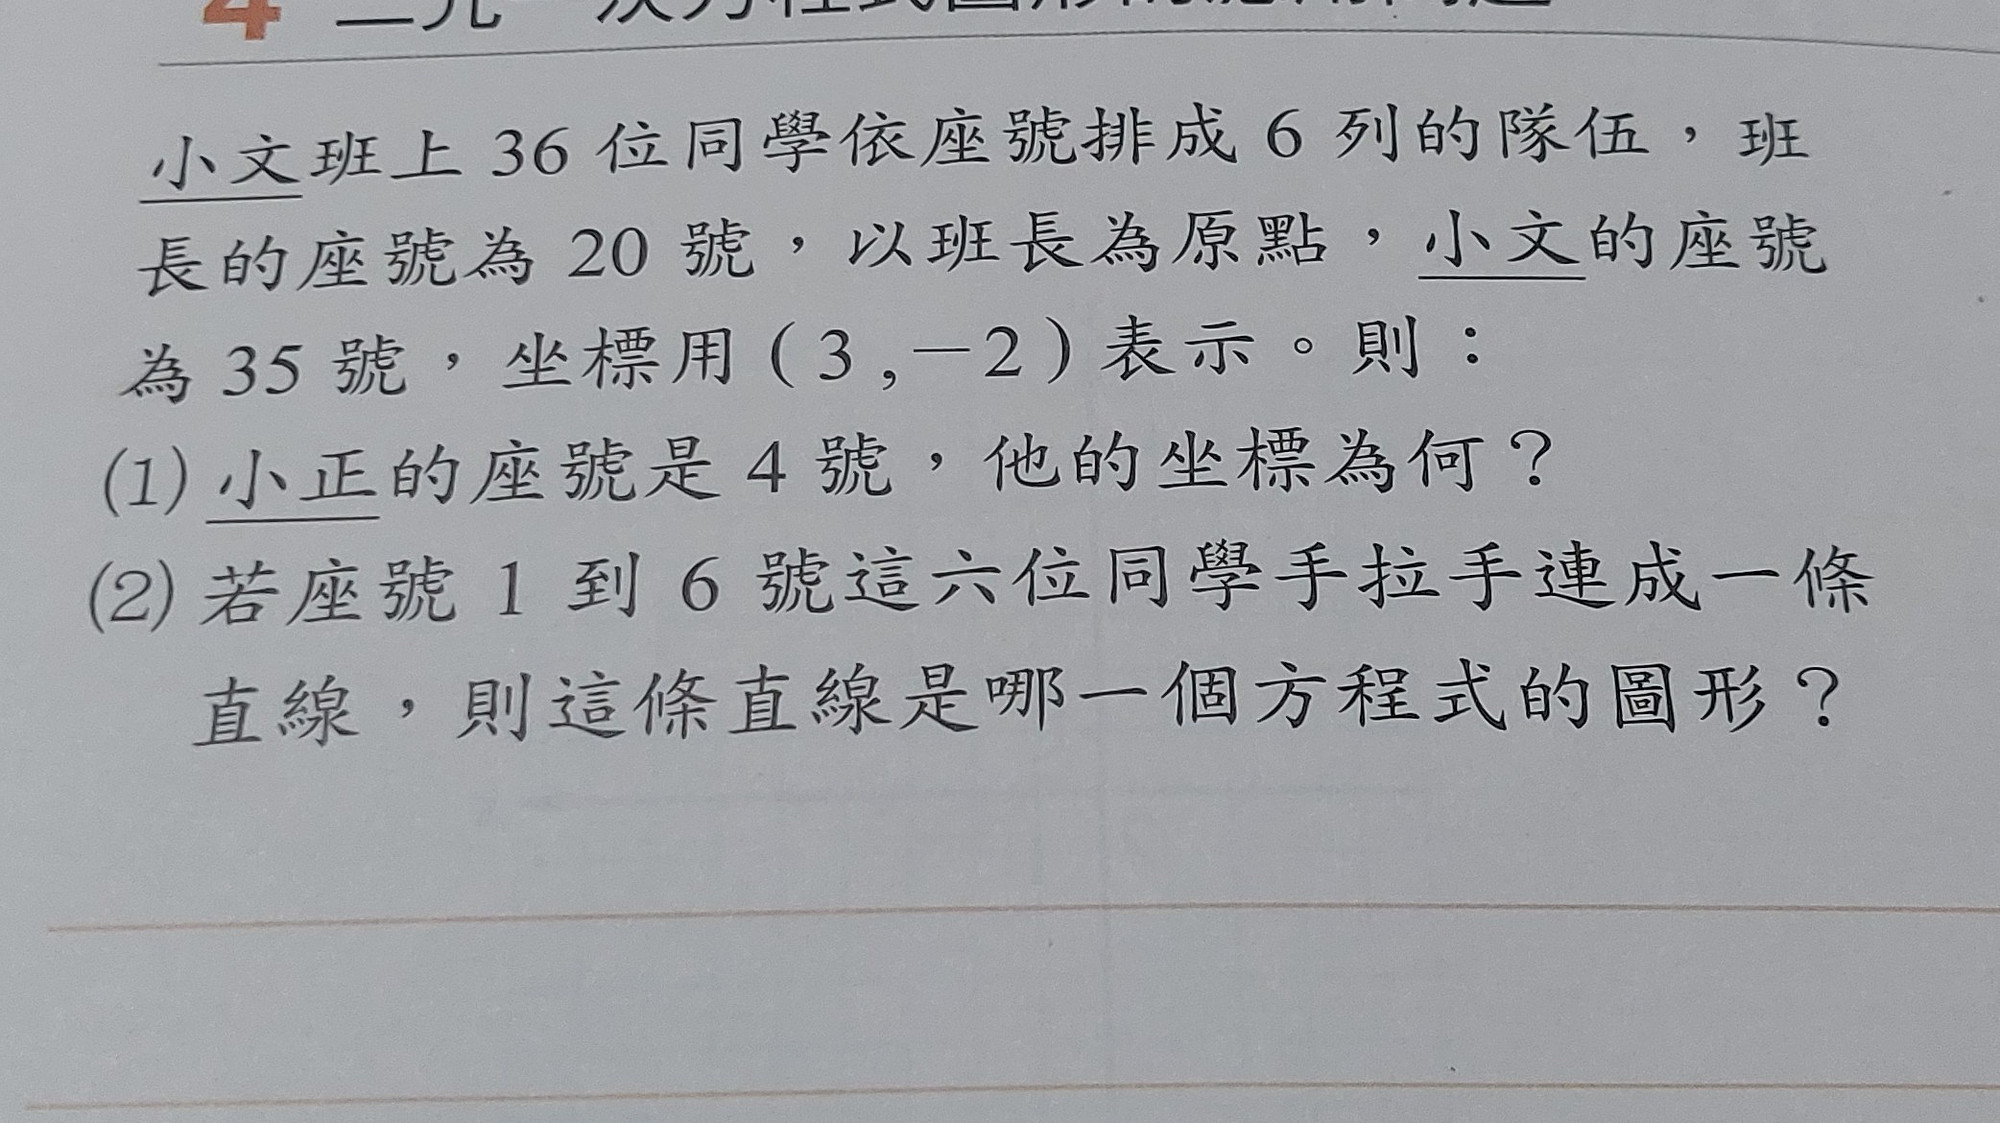 4 二元一次方程式圖形的應用問題
小文班上 36 位同學依座號排成 6 列的隊伍，班
長的座號為 20 號，以班長為原點，小文的座號
為 35 號，坐標用（3，－2）表示。則：
(1) 小正的座號是 4 號，他的坐標為何？
(2) 若座號 1 到 6 號這六位同學手拉手連成一條
直線，則這條直線是哪一個方程式的圖形？